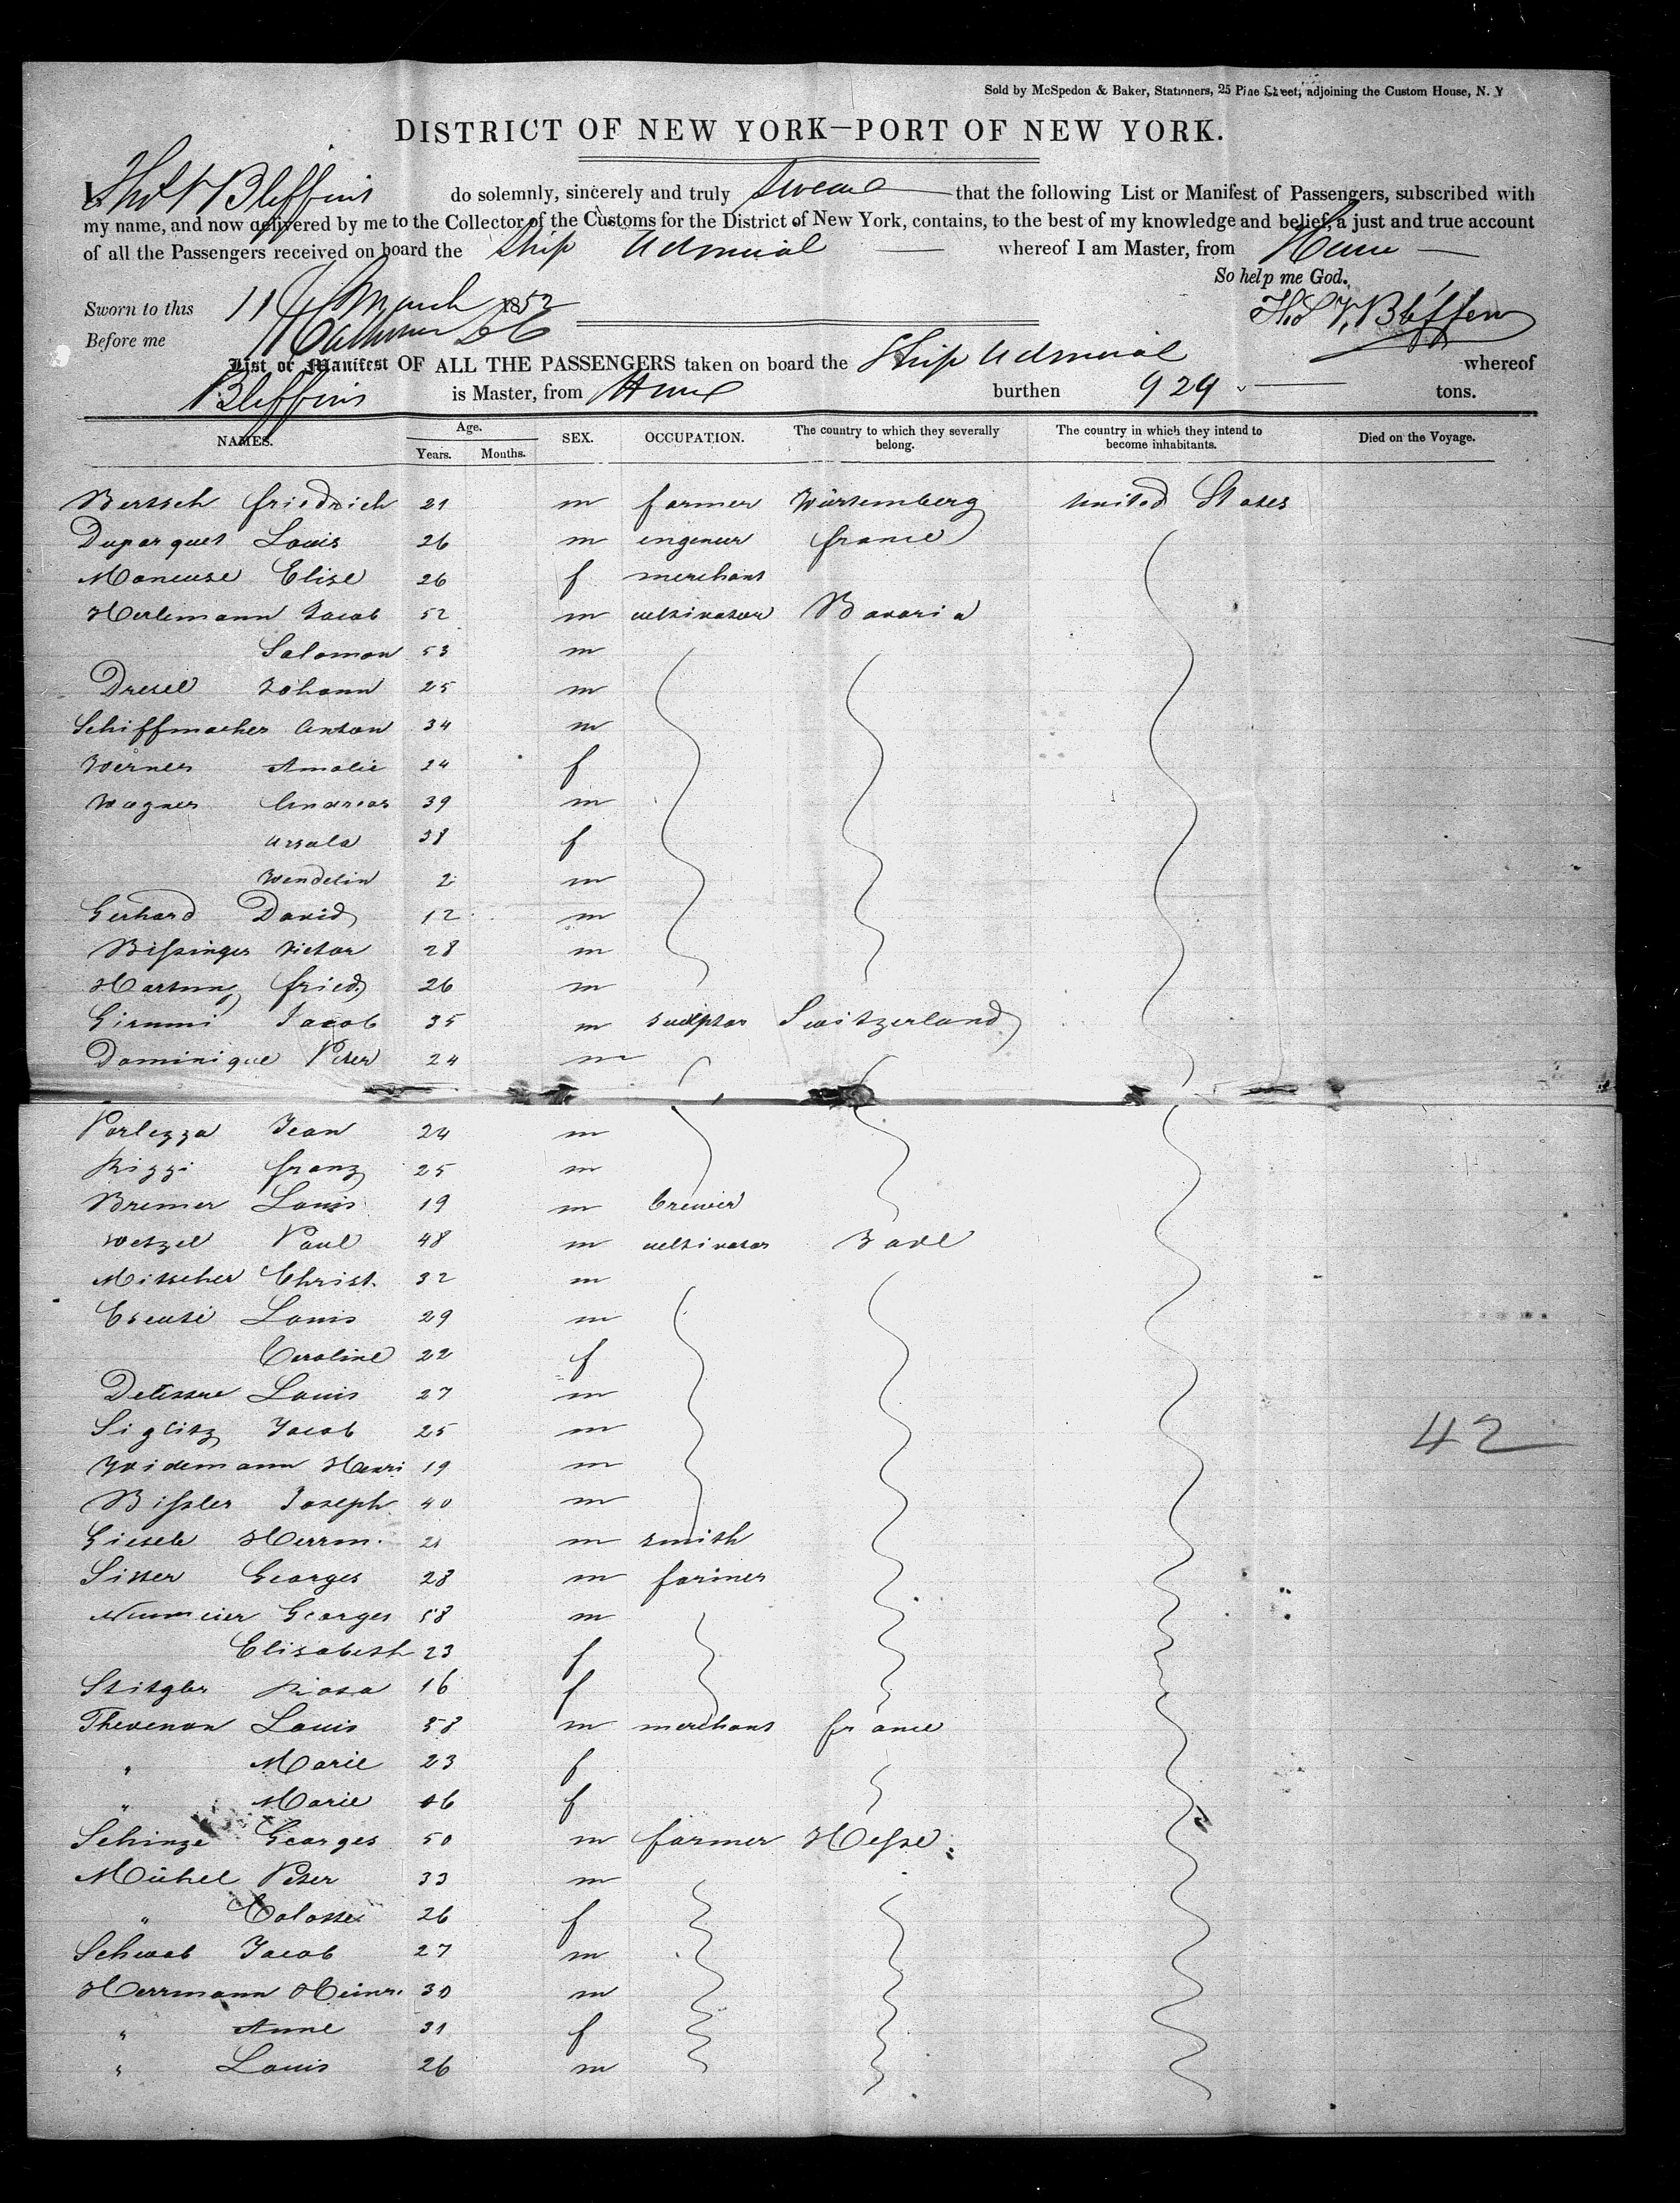 Sold by McSpedon & Baker, Stationers, 25 Pine Street, adjoining the Custom House, N. Y
DISTRICT OF NEW YORK—PORT OF NEW YORK.
I, Thos V Bleffins do solemnly, sincerely and truly swear that the following List or Manifest of Passengers, subscribed with
my name, and now delivered by me to the Collector of the Customs for the District of New York, contains, to the best of my knowledge and belief, a just and true account
of all the Passengers received on board the Ship Admiral whereof I am Master, from Havre
So help me God.
Sworn to this 11 March 1852
Before me
List or Manifest OF ALL THE PASSENGERS taken on board the Ship Admiral whereof
Bleffins is Master, from Havre burthen 929 tons.
NAMES. Age. Years. Months. SEX. OCCUPATION. The country to which they severally belong. The country in which they intend to become inhabitants. Died on the Voyage.
Bertsch friedrich 21 m farmer Würtemberg United States
Duparquet Louis 26 m engineur france
Moneuse Elise 26 f merchant
Herlemann Jacob 52 m cultivator Bavaria
Salomon 53 m
Dresel Johann 25 m
Schiffmacher Anton 34 m
Werner Amalie 24 f
Wagner Andreas 39 m
Ursula 38 f
Wendelin 2 m
Gerhard David 12 m
Bissinger Victor 28 m
Hartung fried. 26 m
Jacob 35 m sculptor Switzerland
Dominique Peter 24 m
Porlezza Jean 24 m
Rizzi franz 25 m
Bremer Louis 19 m brewer
Wetzel Paul 48 m cultivator Bade
Mitscher Christ. 32 m
Louis 29 m
Caroline 22 f
Louis 27 m
Siglitz Jacob 25 m
Weidemann Henri 19 m
Bissler Joseph 40 m
Giesele Herrm. 21 m smith
Sitter Georges 28 m farmer
Neumeier Georges 58 m
Elisabeth 23 f
Stitgler Rosa 16 f
Thevenon Louis 38 m merchant france
" Marie 23 f
" Marie 16 f
Schinze Georges 50 m farmer Hesse
Michel Peter 33 m
" 26 f
Schwab Jacob 27 m
Herrmann Heinr. 30 m
" Anne 31 f
" Louis 26 m
42